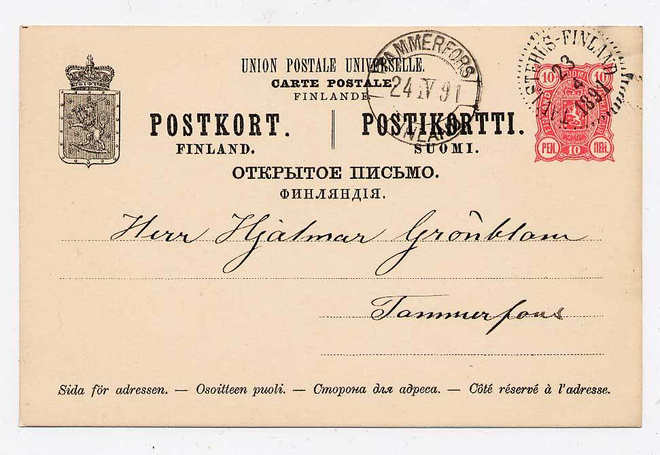 UNION POSTALE UNIVERSELLE.
CARTE POSTALE
FINLANDE
POSTKORT. | POSTIKORTTI.
FINLAND. SUOMI.
ОТКРЫТОЕ ПИСЬМО.
ФИНЛЯНДІЯ.
TAMMERFORS
24 IV 91
FINLAND
STEHUS-FINLAND
23
4
1891
10 10
PEN. 10 ПЕН.
Herr Hjalmar Grönblom
Tammerfors
Sida för adressen. — Osoitteen puoli. — Сторона для адреса. — Côté réservé à l'adresse.